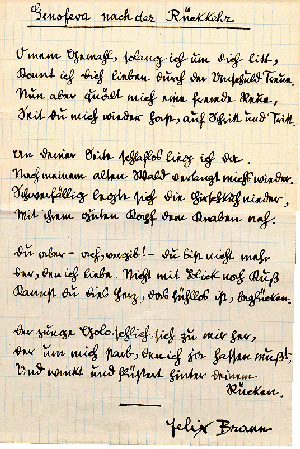 Genofeva nach der Rückkehr
O mein Gemahl, solang ich um dich litt,
Konnt ich dich lieben durch der Unschuld Treue.
Nun aber quält mich eine fremde Reue,
Seit du mich wieder hast, auf Schritt und Tritt.
An deiner Seite schlaflos lieg ich da.
Nach meinem alten Wald verlangt mich's wieder.
Schwerfällig legte sich die Hirschkuh nieder,
Mit ihrem guten Kopf dem Knaben nah.
Du aber – ach, vergib! – du bist nicht mehr
der, den ich liebe. Nicht mit Blick noch Kuß
Kannst du dies Herz, das fühllos ist, beglücken.
Der junge Golo schlich sich zu mir her,
der um mich starb, den ich hassen muß,
Und winkt und flüstert hinter deinem
Rücken.
Felix Braun